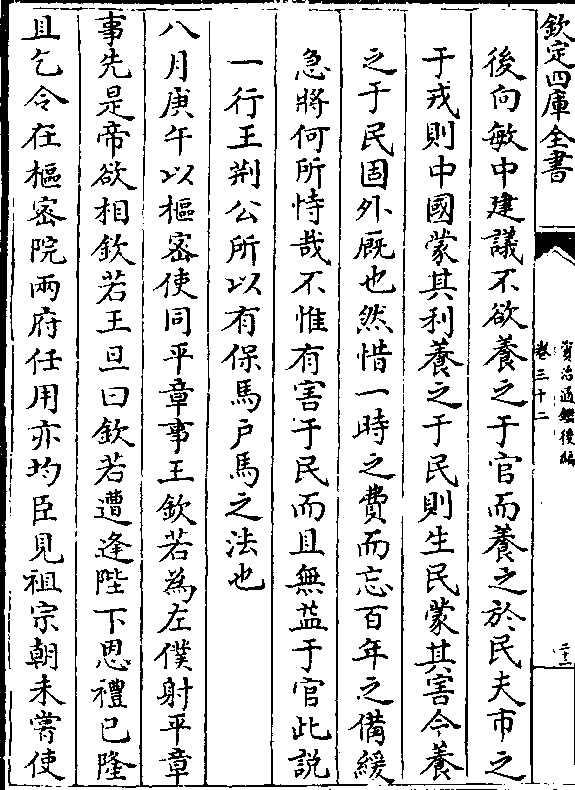 欽定四庫全書
資治通鑑後編
卷三十二
後向敏中建議不欲養之于官而養之於民夫市之
于戎則中國蒙其利養之于民則生民蒙其害今養
之于民固外廐也然惜一時之費而忘百年之備緩
急將何所恃哉不惟有害于民而且無益于官此説
一行王荆公所以有保馬戸馬之法也
八月庚午以樞密使同平章事王欽若為左僕射平章
事先是帝欲相欽若王旦曰欽若遭逢陛下恩禮已隆
且乞令在樞密院兩府任用亦均臣見祖宗朝未嘗使